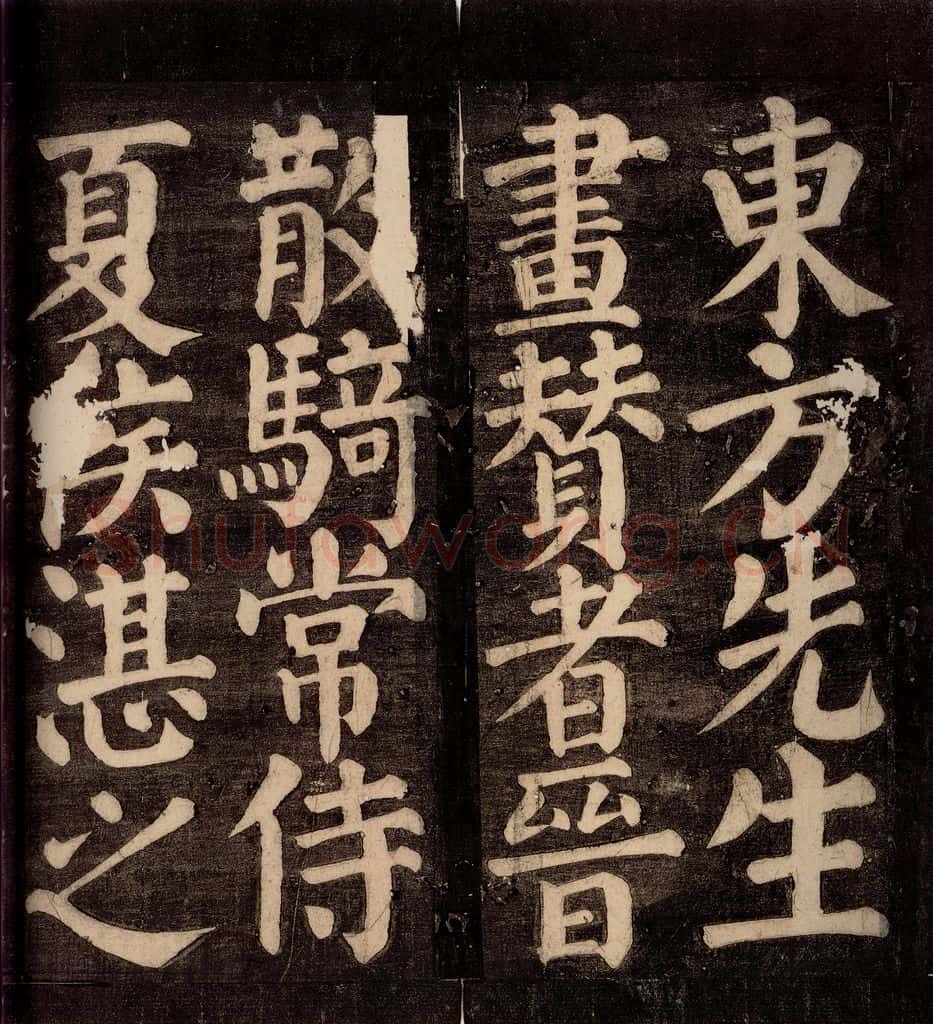 東方先生
畫贊者晉
散騎常侍
夏侯湛之
Shufawang.CN